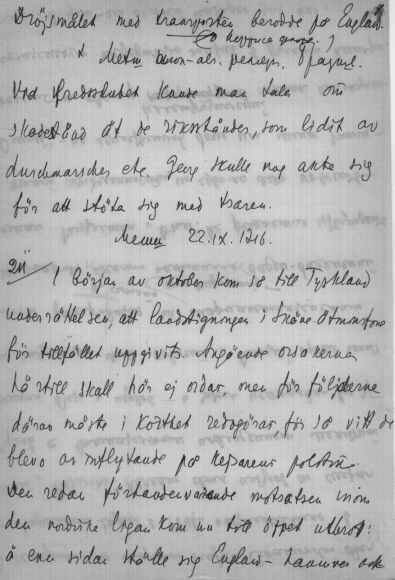 Dröjsmålet med transporten berodde på England.
Vid fredsslutet kunde man tala om
skadestånd åt de riksständer, som lidit av
durchmarscher etc. Georg skulle nog akta sig
för att stöta sig med tsaren.
22.IX.1716.
I början av oktober kom så till Tyskland
underrättelsen, att landstigningen i Skåne åtminstone
för tillfället uppgivits. Angående orsakerna
härtill skall här ej ordas, men för följderna
därav måste i korthet redogöras, för så vitt de
blevo av inflytande på kejsarens politik.
Den redan förhandenvarande motsatsen inom
den nordiska ligan kom nu till öppet utbrott:
å ena sidan ställde sig England-Hannover och